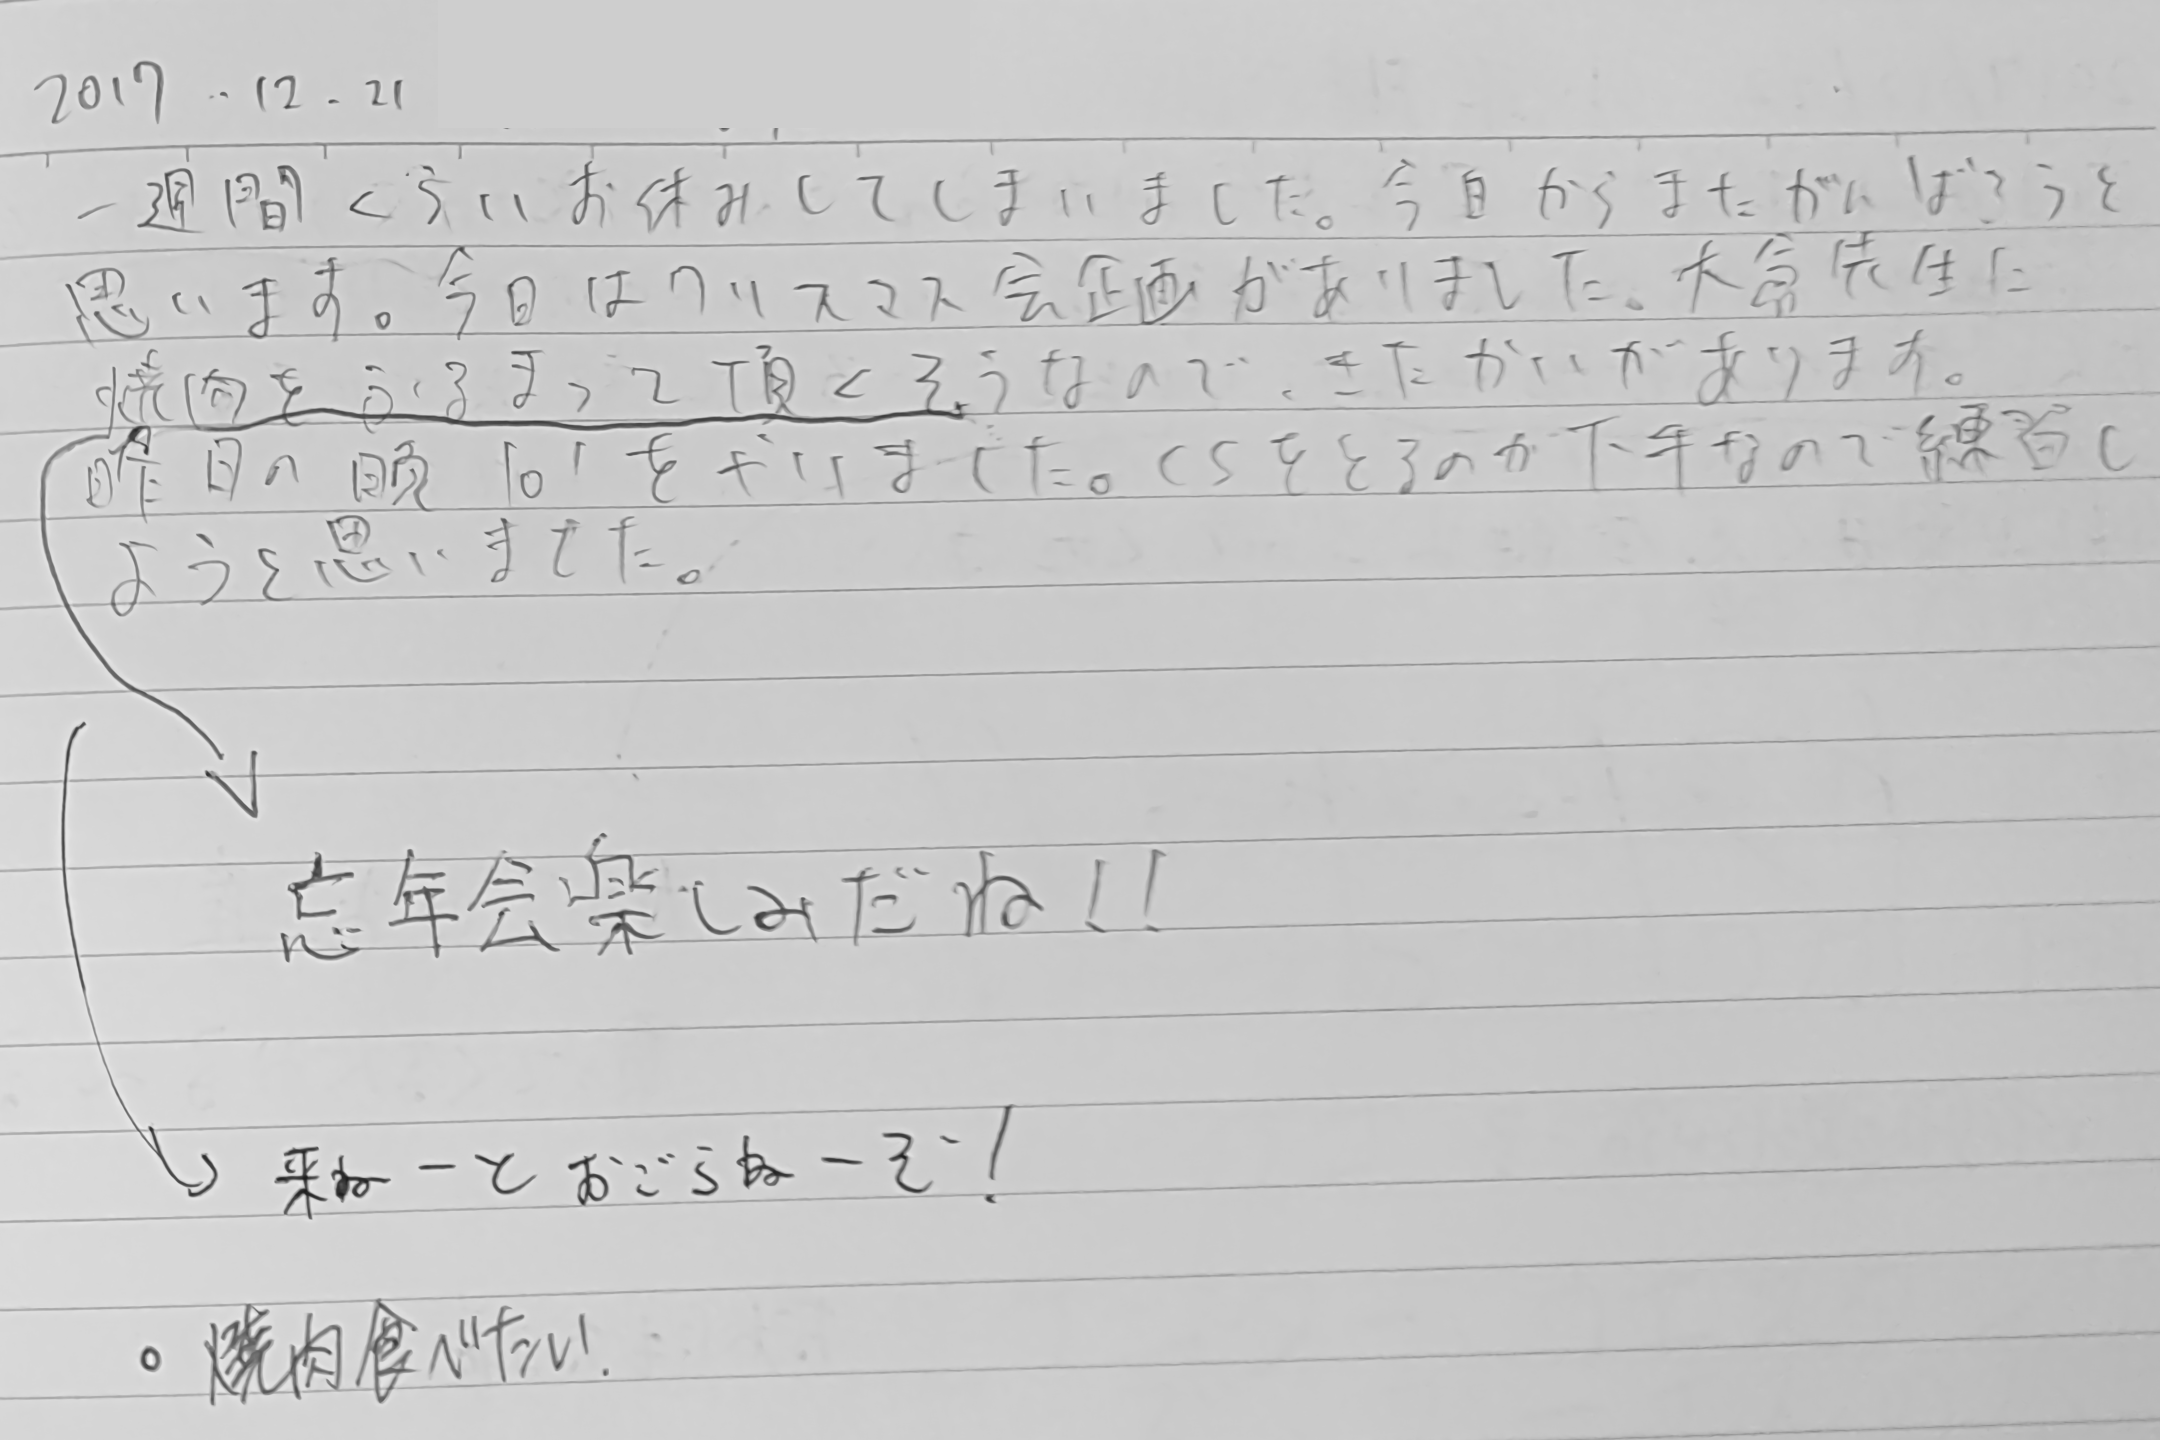 2017..12.21
一週間くらいお休みしてしまいました。今日からまたがんばろうと
思います。今日はクリスマス会企画がありました。大 先生に
焼肉をふるまって頂くそうなので、きたかいがあります。
昨日の晩 lolをやりました。CSをとるのが下手なので練習し
ようと思いました。
忘年会楽しみだね!!
来ねーとおごらねーぞ!
○ 焼肉食べたい!